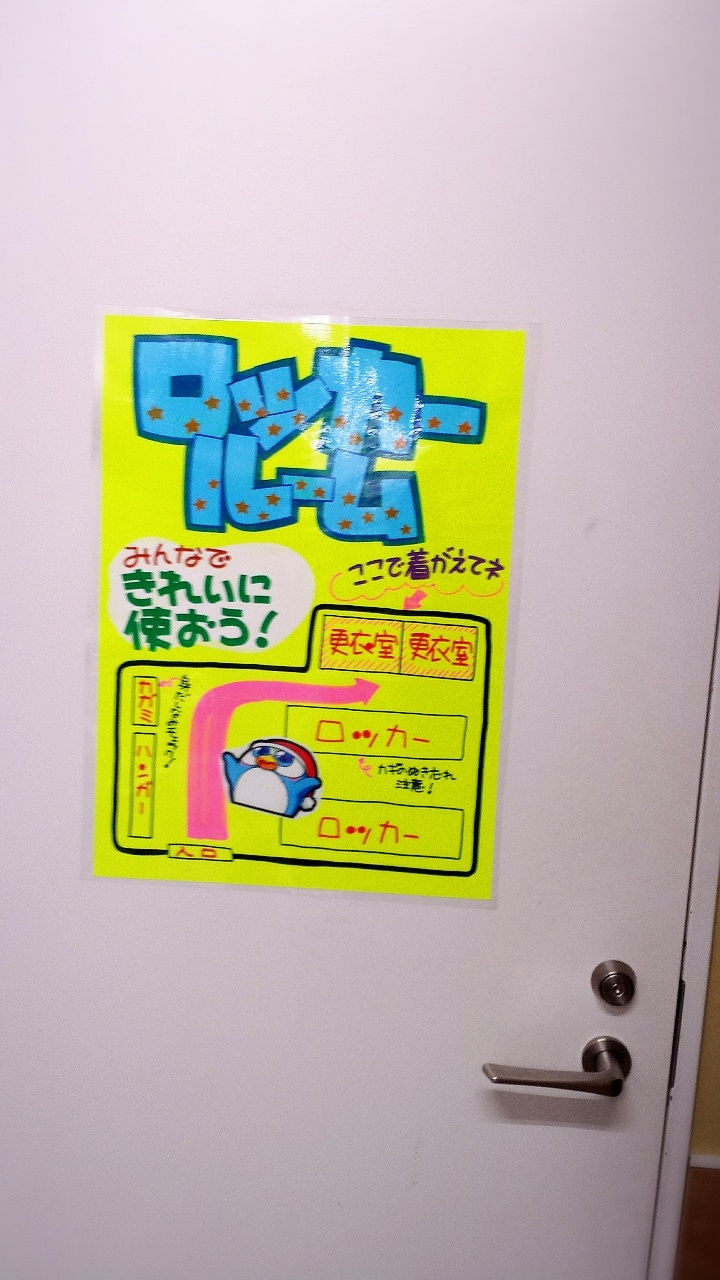 ロッカー
ルーム
みんなで
きれいに
使おう!
ここで着がえてネ
更衣室 更衣室
カガミ
ハンガー
ロッカー
カギのぬき忘れ
注意!
ロッカー
入口